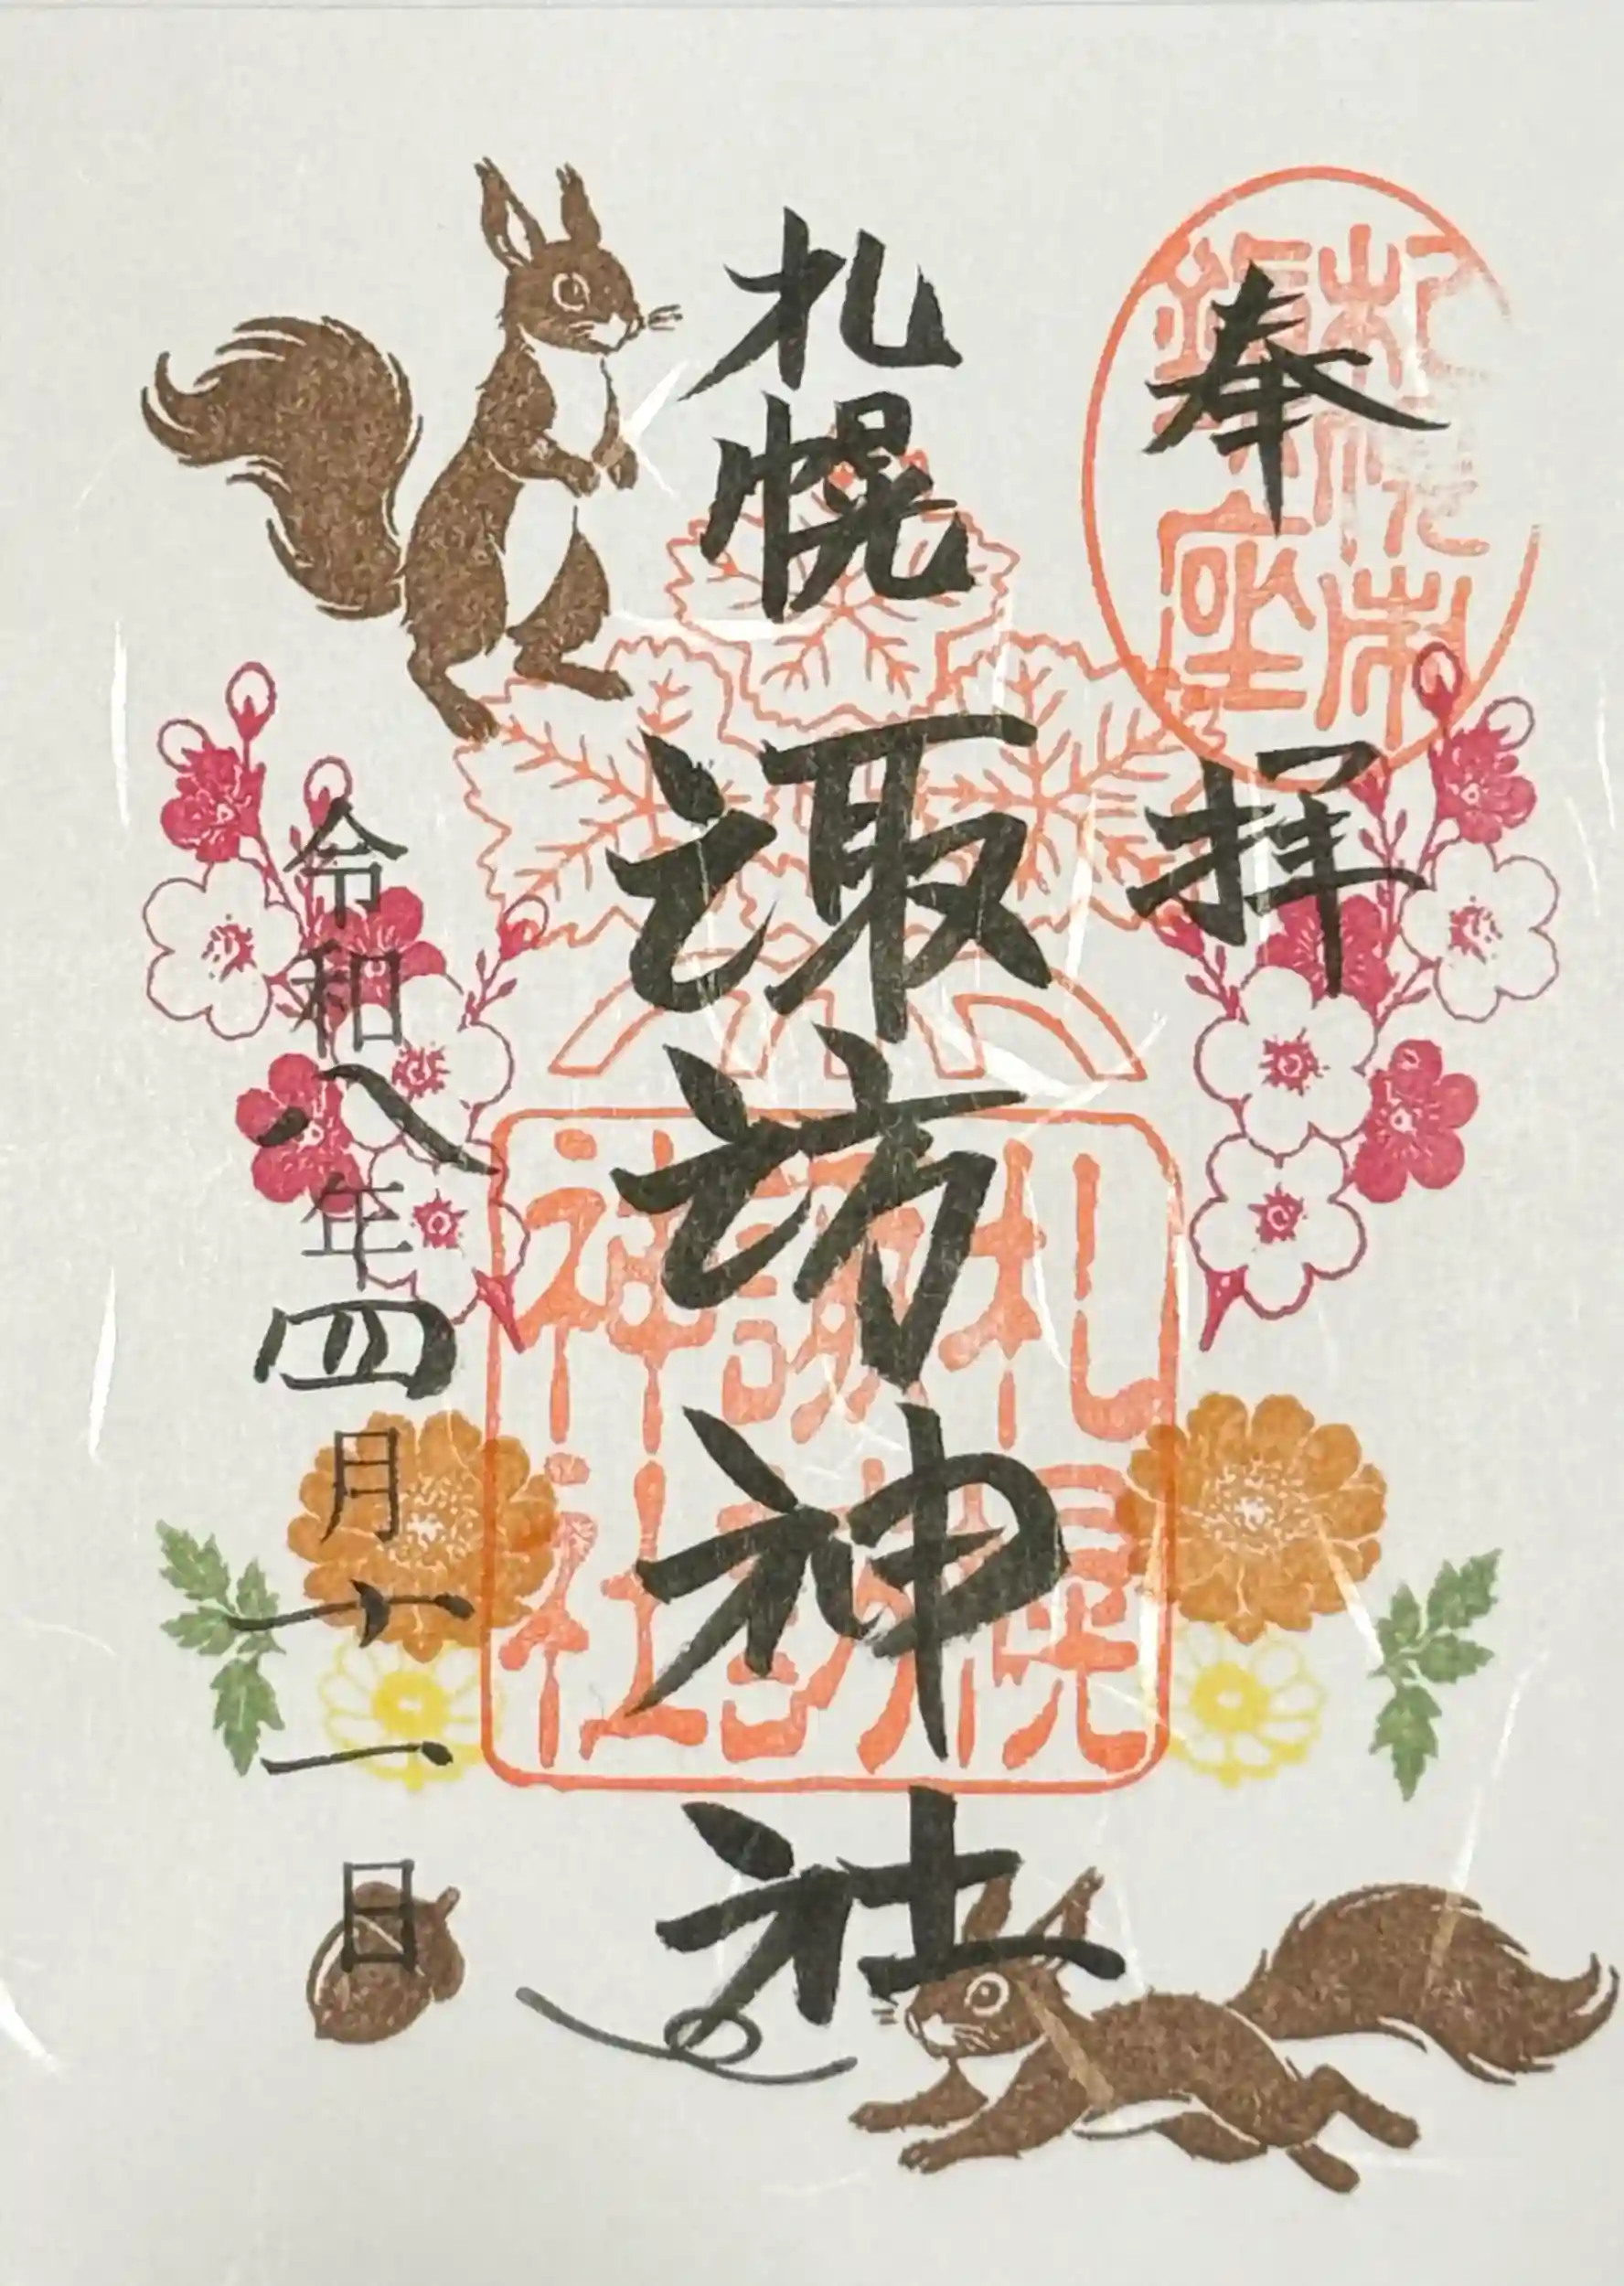 奉拝
札幌市
鎮座
札幌諏訪神社
札幌
諏訪
神社
令和八年四月十一日